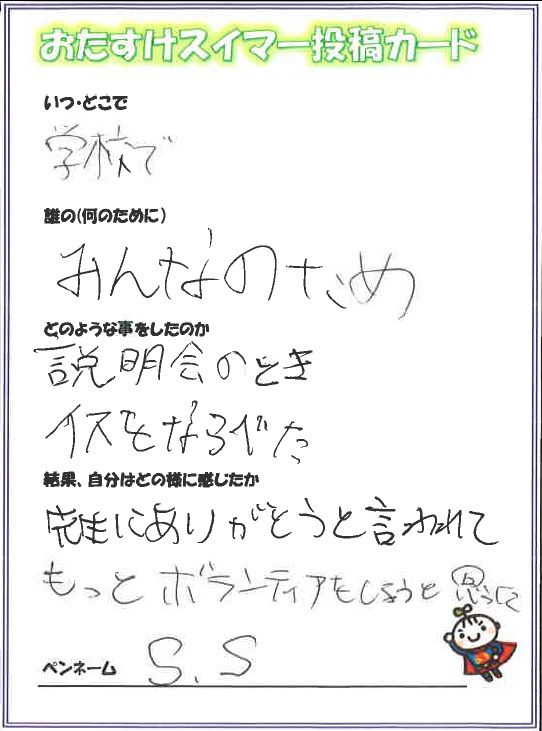 おたすけスイマー投稿カード
いつ・どこで
学校で
誰の(何のために)
みんなのため
どのような事をしたのか
説明会のとき
イスをならべた
結果、自分はどの様に感じたか
先生にありがとうと言われて
もっとボランティアをしようと思った
ペンネーム S.S